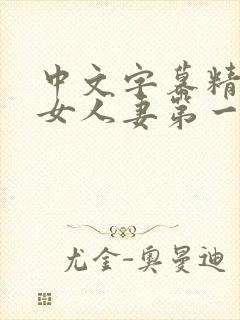 中文字幕精
女人妻第一
尤金-奥曼迪